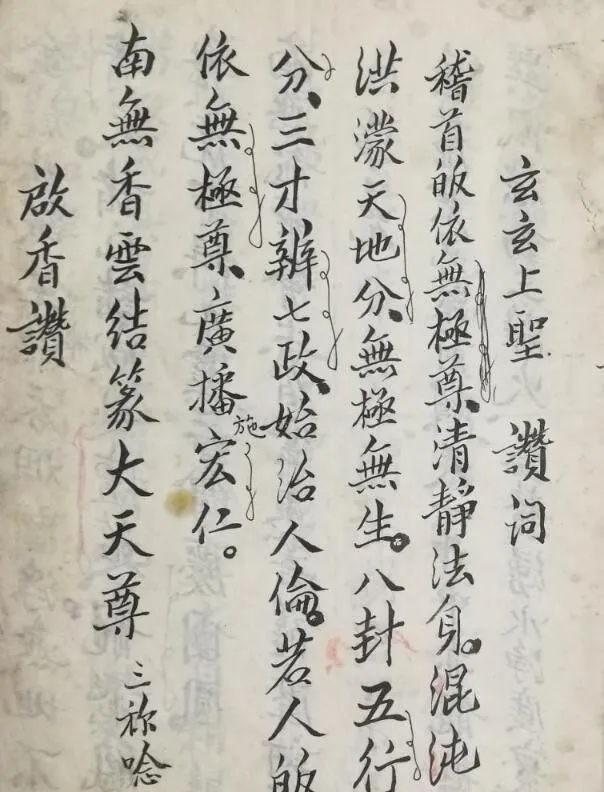 玄玄上聖 讚词
稽首皈依無極尊、清靜法身。混沌
洪濛天地分、無極無生。八封五行
分、三才辦七政、始治人倫。若人皈
依無極尊、廣播施宏仁。
南無香雲結篆大天尊 三称唸
啟香讚